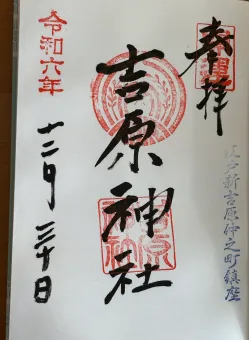 奉拝
江戸新吉原仲之町鎮座
吉原神社
令和六年
十二月三十日